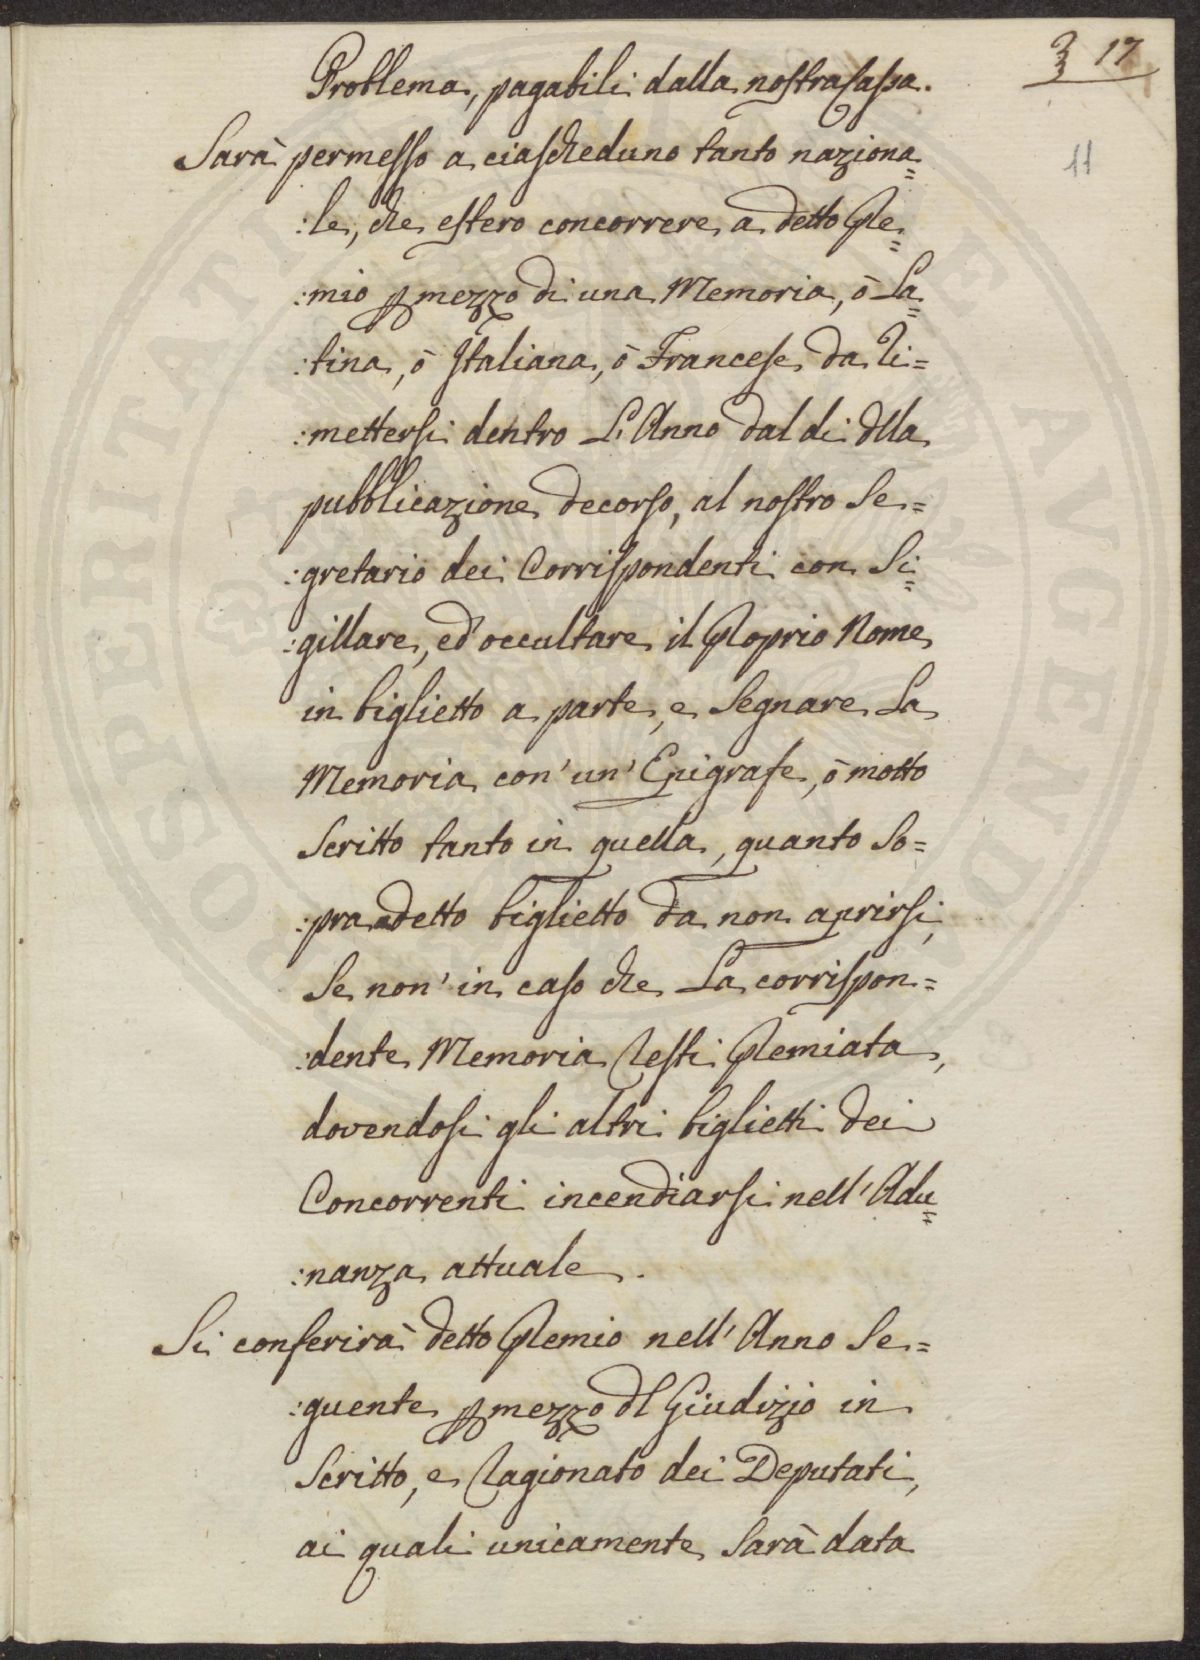 3 17
11
Problema, pagabili dalla nostra Cassa.
Sarà permesso a ciascheduno tanto naziona=
:le, che estero concorrere a detto Pre=
:mio p mezzo di una Memoria, ò La=
:tina, ò Italiana, ò Francese da ri=
:mettersi dentro L'Anno dal di dlla
pubblicazione decorso, al nostro Se=
:gretario dei Corrispondenti con Si=
:gillare, ed occultare il Proprio Nome
in biglietto a parte, e Segnare La
Memoria con' un' Epigrafe, ò motto
Scritto tanto in quella, quanto So=
:pra detto biglietto da non aprirsi,
Se non' in caso che La corrispon=
:dente Memoria resti Premiata,
dovendosi gli altri biglietti dei
Concorrenti incendiarsi nell' Adu=
:nanza attuale.
Si conferirà detto Premio nell' Anno Se=
:guente p mezzo dl Giudizio in
Scritto, e ragionato dei Deputati,
ai quali unicamente Sarà data
PROSPERITATI AVGENDAE